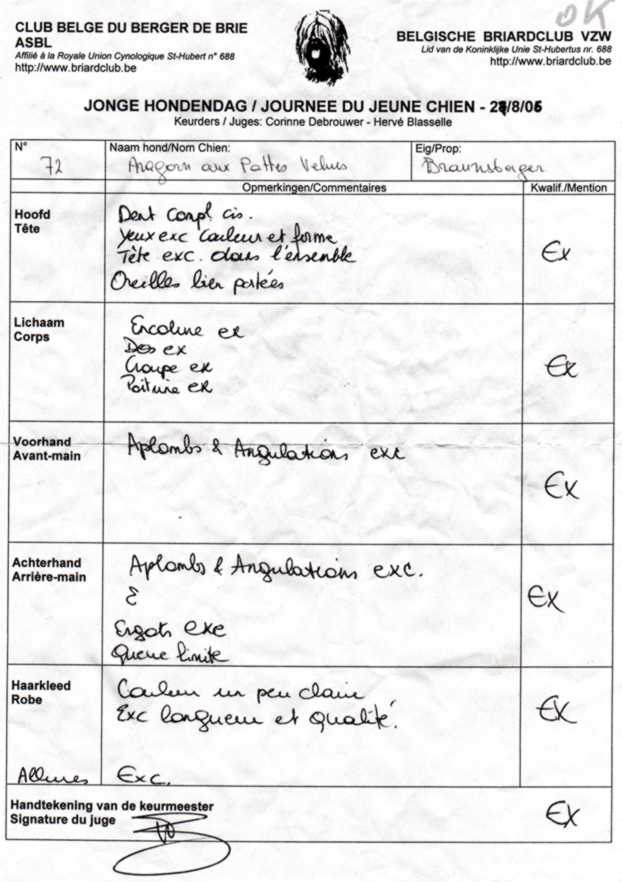 OK
CLUB BELGE DU BERGER DE BRIE
ASBL
Affilié à la Royale Union Cynologique St-Hubert n° 688
http://www.briardclub.be
BELGISCHE BRIARDCLUB VZW
Lid van de Koninklijke Unie St-Hubertus nr. 688
http://www.briardclub.be
JONGE HONDENDAG / JOURNEE DU JEUNE CHIEN - 28/8/05
Keurders / Juges: Corinne Debrouwer - Hervé Blasselle
N° Naam hond/Nom Chien: Eig/Prop:
72 Aragorn aux Pattes Velues Braunsberger
Opmerkingen/Commentaires Kwalif./Mention
Hoofd
Tête
Dent Compl cis.
Yeux exc Couleur et forme
Tête exc. dans l'ensemble
Oreilles bien portées
Ex
Lichaam
Corps
Encolure ex
Dos ex
Croupe ex
Poitrine ex
Ex
Voorhand
Avant-main
Aplombs & Angulations exc
Ex
Achterhand
Arrière-main
Aplombs & Angulations exc.
Ergots exc
Queue limite
Ex
Haarkleed
Robe
Couleur un peu claire
Exc longueur et qualité.
Ex
Allures Exc.
Handtekening van de keurmeester
Signature du juge
Ex